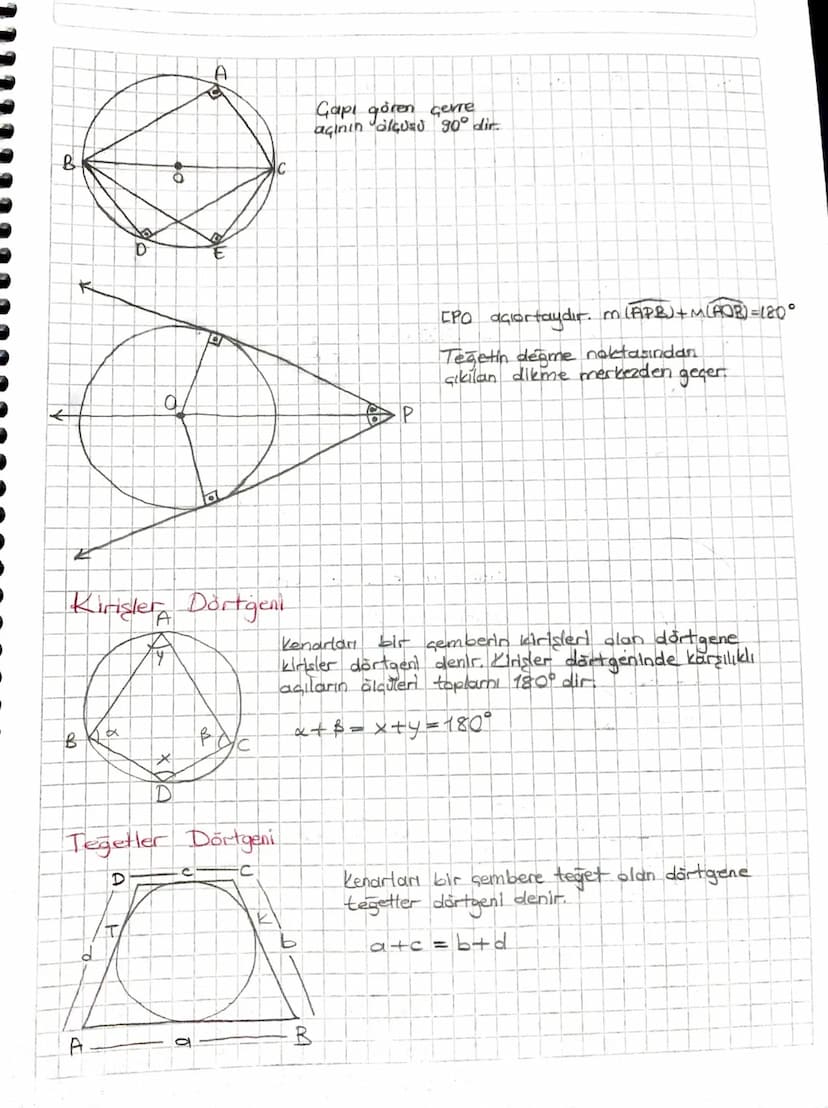 A
Çapı gören çevre
açının ölçüsü 90° dir.
B
O
C
D
E
[PO açıortaydır. m(APB)+m(AOB)=180°
Teğetin değme noktasından
çıkılan dikme merkezden geçer.
O
P
Kirişler Dörtgeni
A
Kenarları bir çemberin kirişleri olan dörtgene
kirişler dörtgeni denir. Kirişler dörtgeninde karşılıklı
açıların ölçüleri toplamı 180° dir.
y
α + β = x+y = 180°
B α β C
x
D
Teğetler Dörtgeni
D c C
Kenarları bir çembere teğet olan dörtgene
teğetler dörtgeni denir.
T K
d b
a+c = b+d
A a B